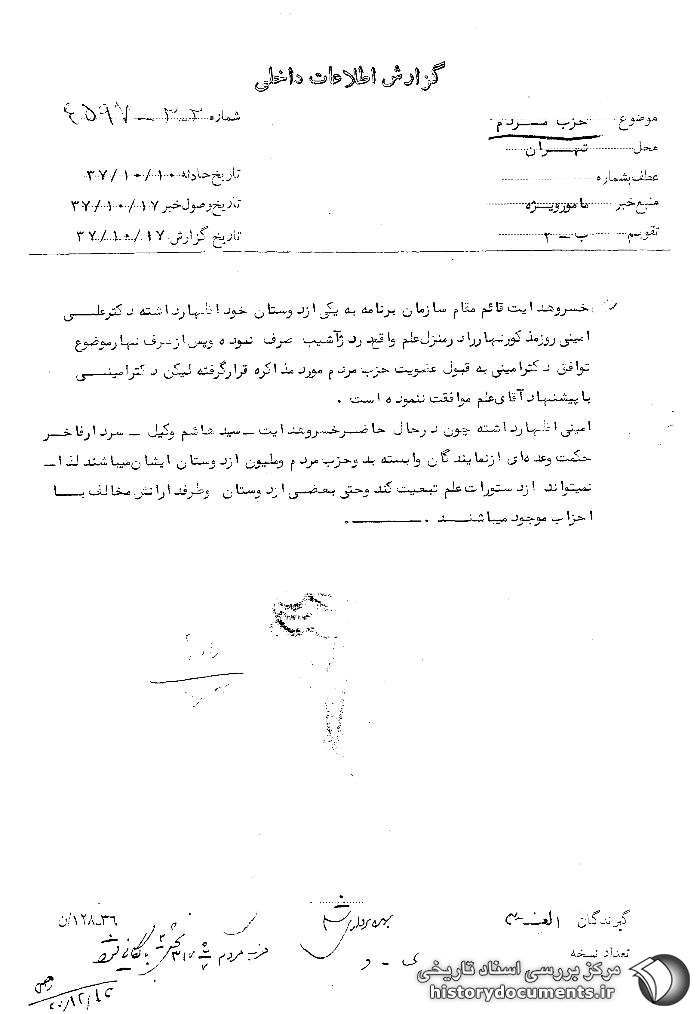 گزارش اطلاعات داخلی
موضوع حزب مردم
شماره
محل تهران
عطف بشماره
تاریخ حادثه ۳۷/۱۰/۱۰
منبع خبر مامور ویژه
تاریخ وصول خبر ۳۷/۱۰/۱۷
تقویم ب - ۲
تاریخ گزارش ۳۷/۱۰/۱۷
خسرو هدایت قائم مقام سازمان برنامه به یکی از دوستان خود اظهار داشته دکتر علی
امینی روز مذکور نهار را در منزل علم واقع در دزآشیب صرف نموده و پس از صرف نهار موضوع
توافق دکتر امینی به قبول عضویت حزب مردم مورد مذاکره قرار گرفته لیکن دکتر امینی
با پیشنهاد آقای علم موافقت ننموده است .
امینی اظهار داشته چون در حال حاضر خسرو هدایت - سید هاشم وکیل - سردار فاخر
حکمت و عده‌ای از نمایندگان وابسته بدو حزب مردم و ملیون از دوستان ایشان میباشند لذا -
نمیتواند از دستورات علم تبعیت کند و حتی بعضی از دوستان و طرفدارانش مخالف با
احزاب موجود میباشند .
گیرندگان الف
بهره برداری
۱۲۸-۳۶/ن
تعداد نسخه
حزب مردم
مرکز بررسی اسناد تاریخی
historydocuments.ir